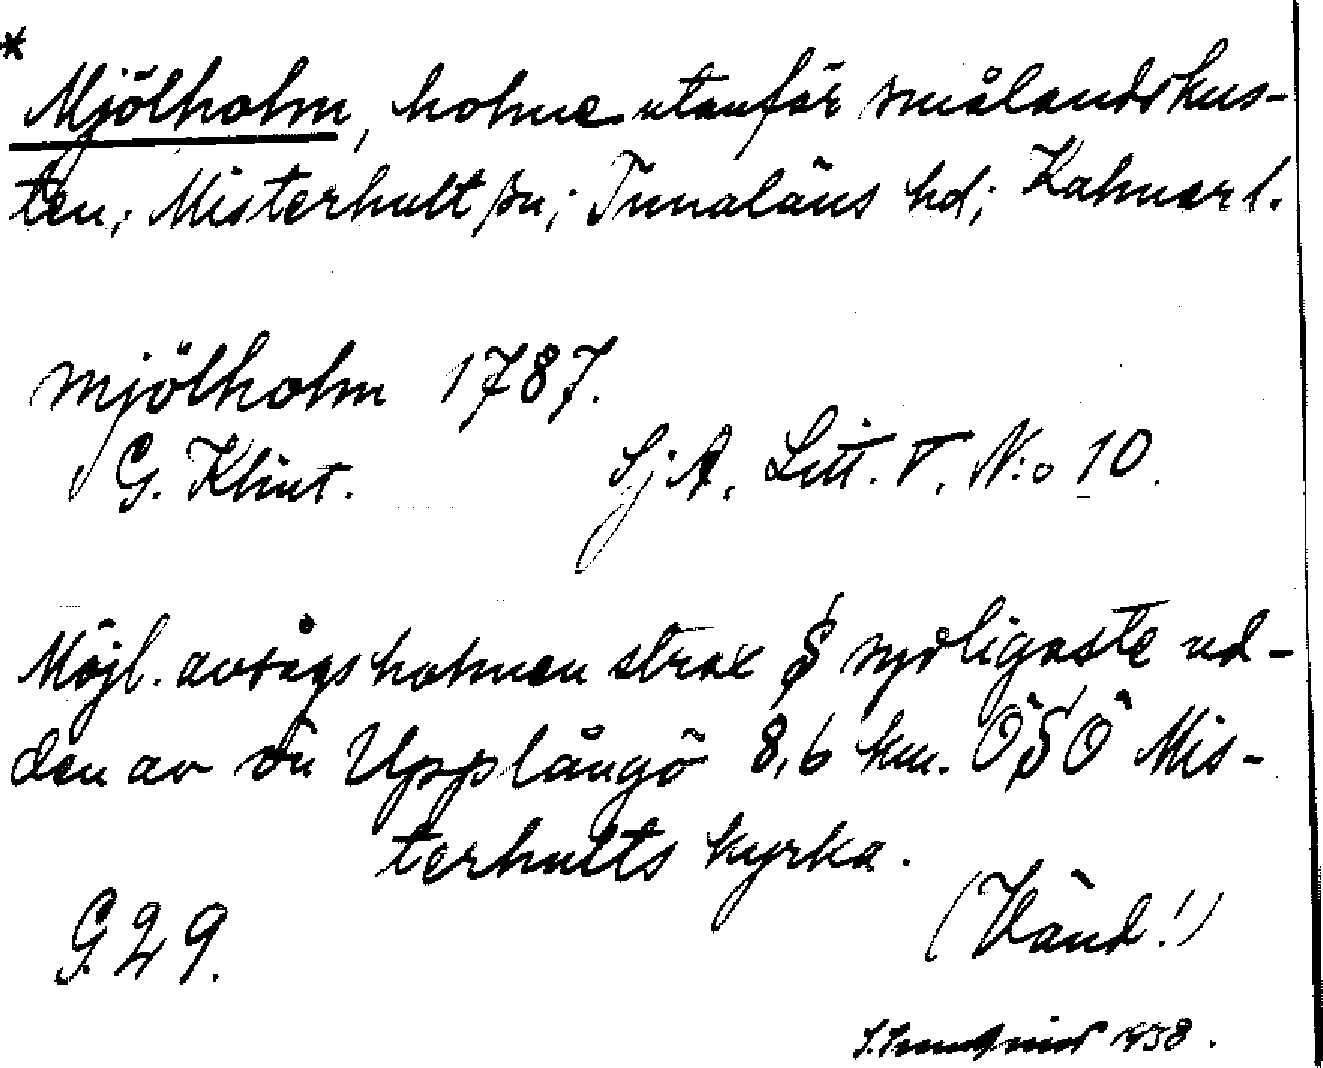 * Mjölholm, holme utanför smålandskus-
ten; Misterhult sn; Tunaläns hd; Kalmar l.
mjölholm 1787.
G. Klint. SjA. Litt. V. N:o 10.
Möjl. avsågs holmen strax S sydligaste ud-
den av ön Upplångö 8,6 km. ÖSÖ Mis-
terhults kyrka.
G. 29. (Vänd!)
1938.